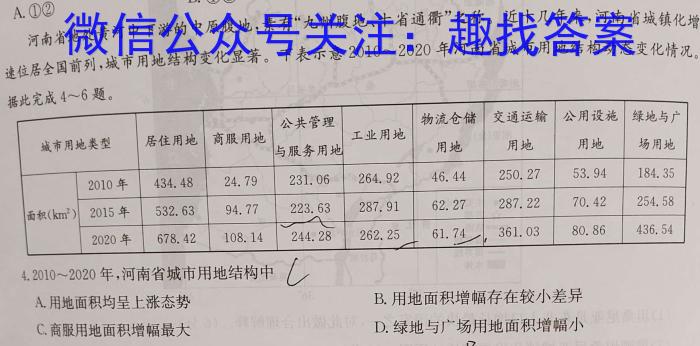 A.①②
河南省 中原腹地,素有“九州腹地、十省通衢”之称。近十几年来,河南省城镇化增
微信公众号关注：趣找答案
速位居全国前列,城市用地结构变化显著。下表示意2010~2020年河南省城市用地结构动态变化情况。
据此完成4~6题。
城市用地类型 居住用地 商服用地 公共管理与服务用地 工业用地 物流仓储用地 交通运输用地 公用设施用地 绿地与广场用地
面积(km²) 2010年 434.48 24.79 231.06 264.92 46.44 250.27 53.94 184.35
2015年 532.63 94.77 223.63 287.91 62.27 287.22 70.42 254.58
2020年 678.42 108.14 244.28 262.25 61.74 361.03 80.86 436.54
4.2010~2020年,河南省城市用地结构中 C
A.用地面积均呈上涨态势
B.用地面积增幅存在较小差异
C.商服用地面积增幅最大
D.绿地与广场用地面积增幅小